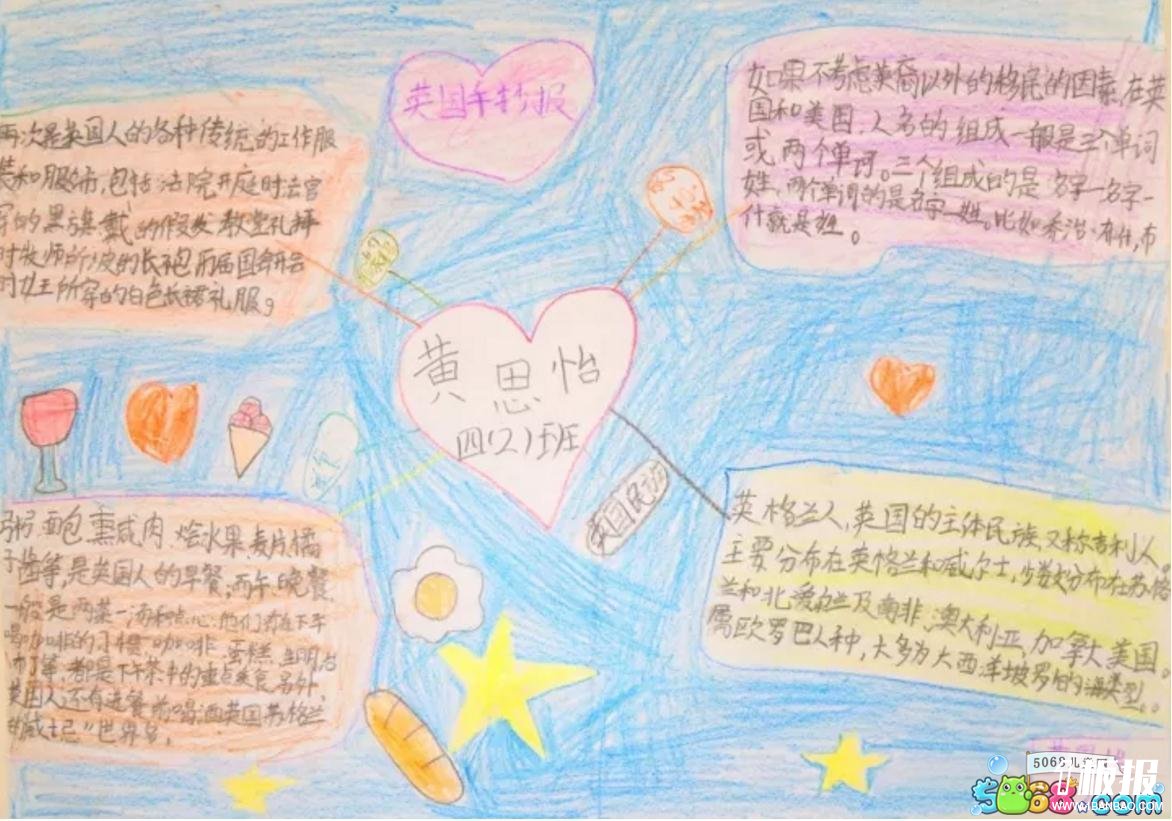 英国手抄报
再次是英国人的各种传统的工作服
装和服饰,包括法院开庭时法官
穿的黑 戴的假发教堂礼拜
时牧师所披的长袍历届国会开会
时女王所穿的白色长裙礼服。
如果不考虑英裔以外的移民的因素,在英
国和美国,人名的组成一般是三个单词
或两个单词。三个组成的是名字一名字一
姓,两个单词的是名字一姓。比如乔治·布什,布
什就是姓。
黄思怡
四(2)班
英国民族
粥 面包 熏咸肉 烩水果 麦片橘
子酱等,是英国人的早餐;而午、晚餐
一般是两菜一汤和点心,他们有在下午
喝咖啡的习惯 咖啡 蛋糕
布丁等,都是下午茶中的重点美食,另外
英国人还有进餐前喝酒英国苏格兰
"威士忌"世界名,
英格兰人,英国的主体民族,又称吉利人。
主要分布在英格兰和威尔士,少数分布在苏格
兰和北爱尔兰及南非,澳大利亚,加拿大,美国。
属欧罗巴人种,大多为大西洋波罗的海类型。
5068儿童网
5068.com
板报
WWW.IBANBAO.COM